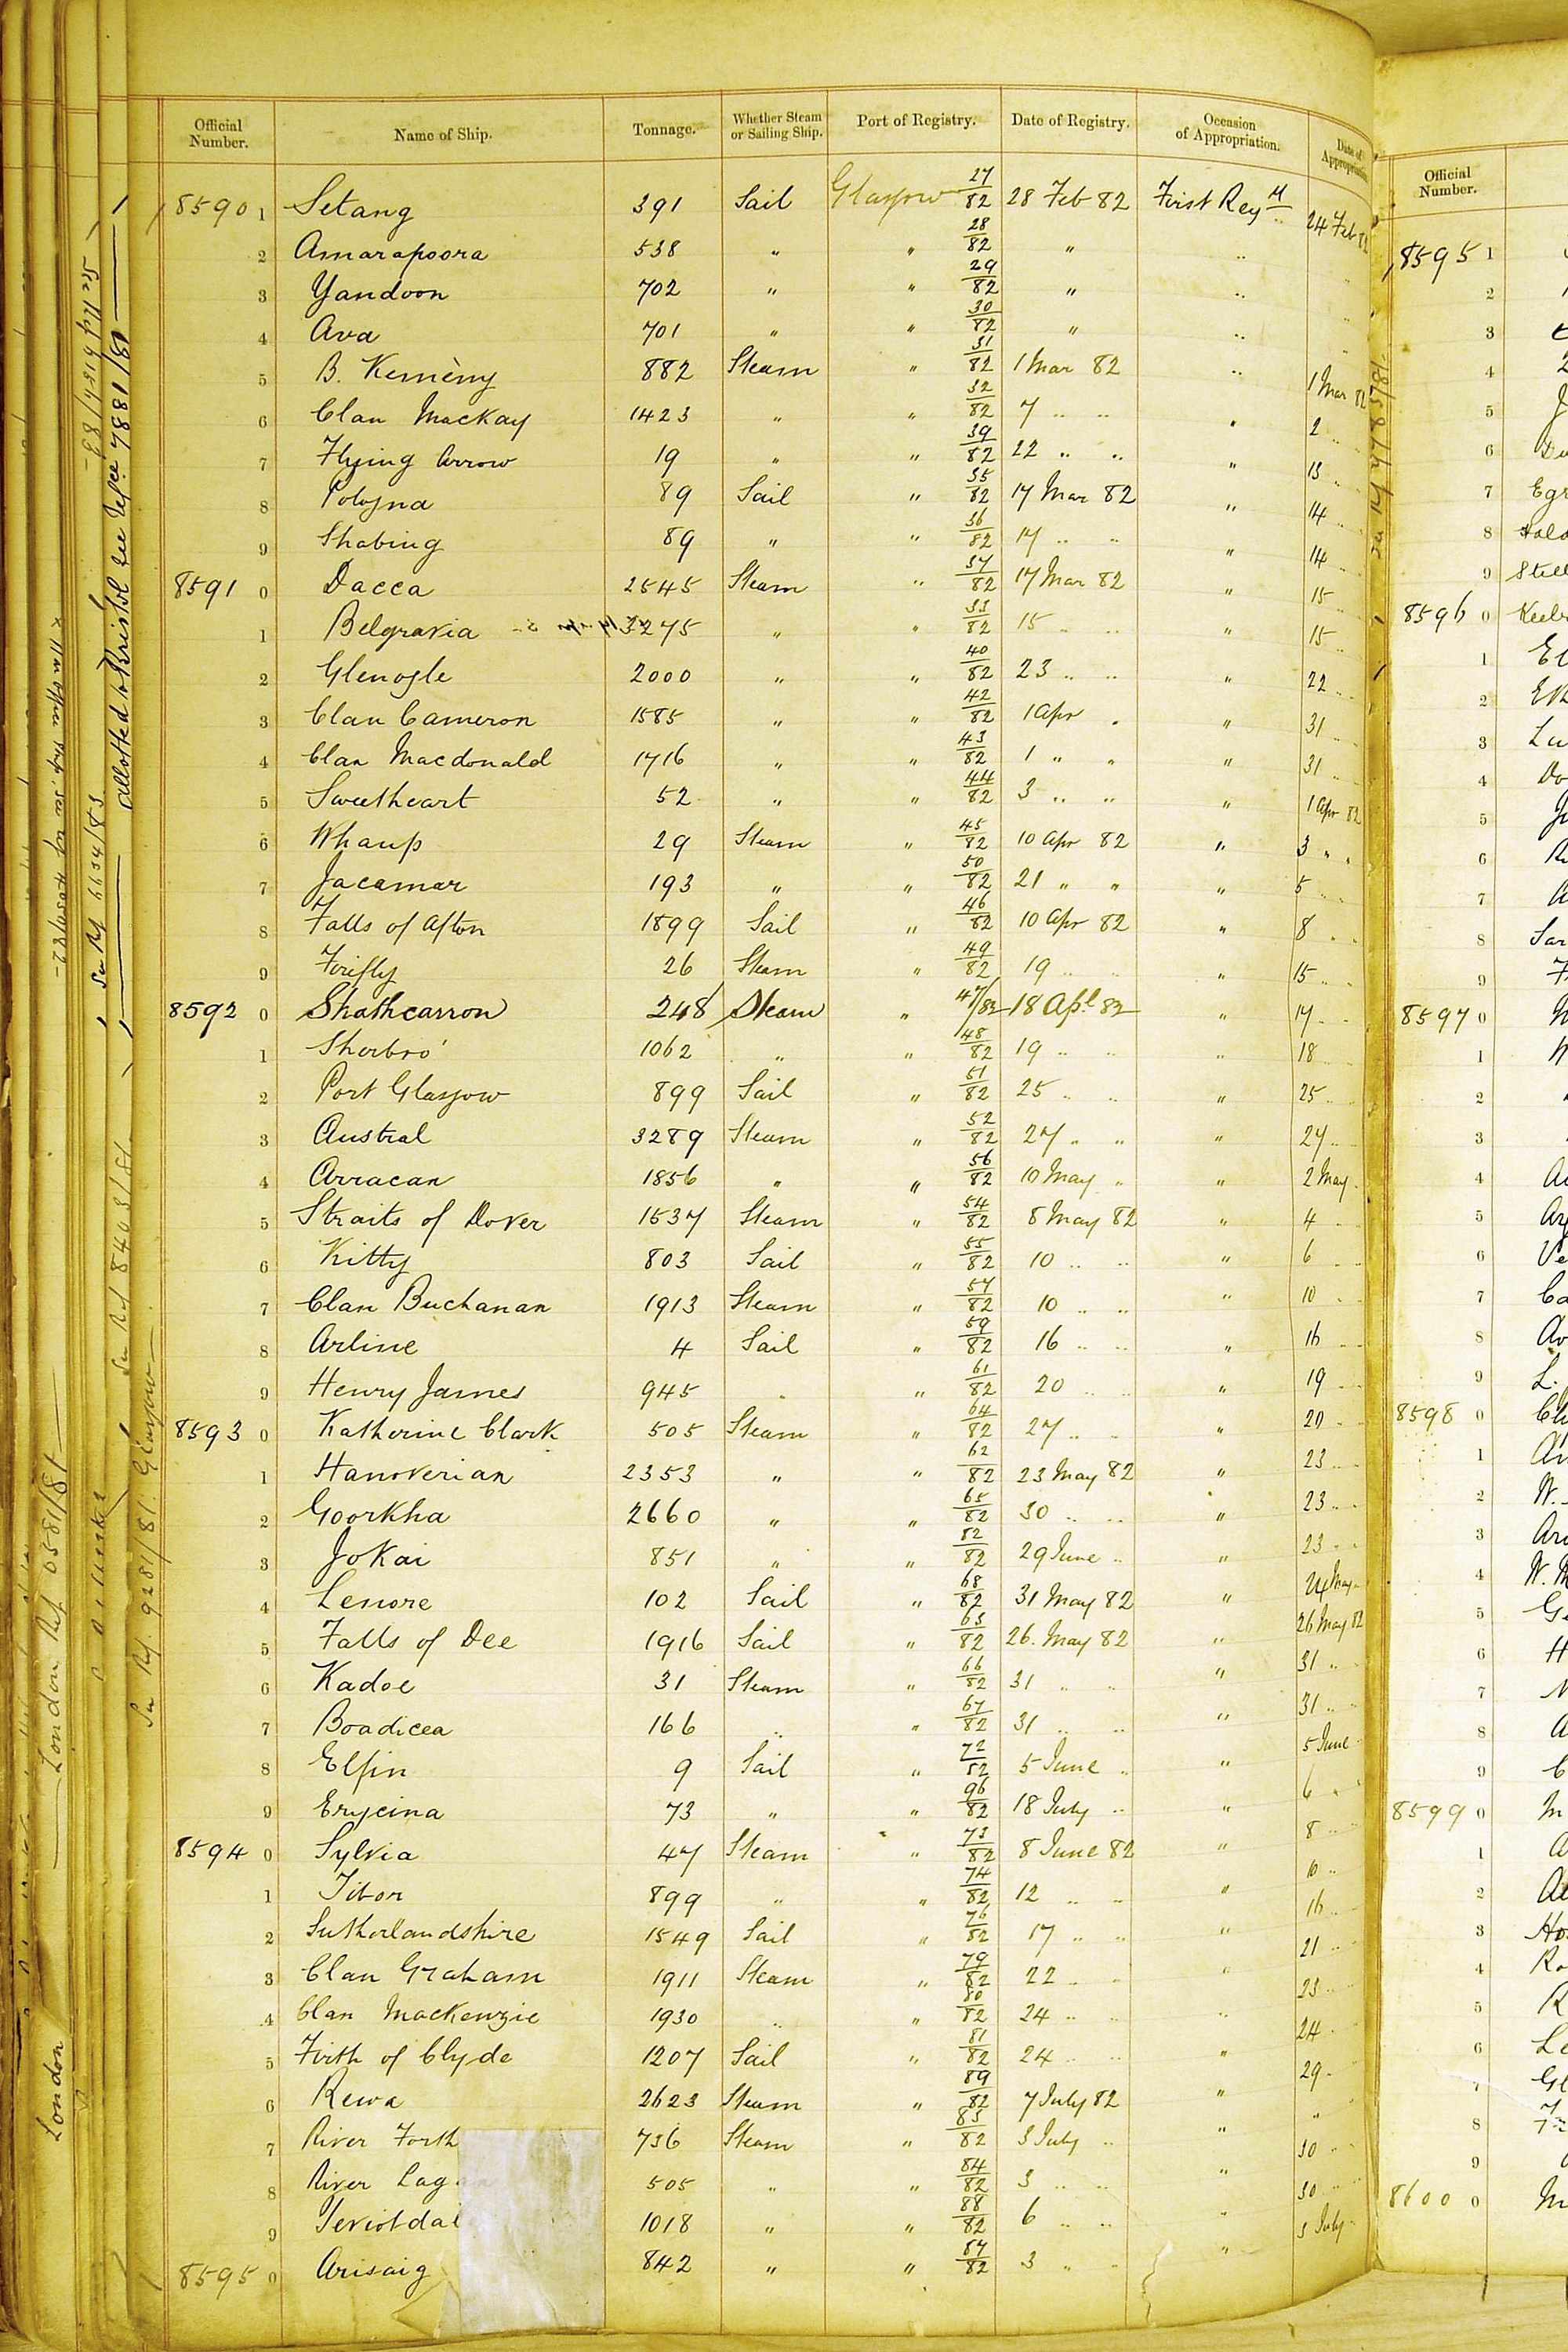 Official Number. Name of Ship. Tonnage. Whether Steam or Sailing Ship. Port of Registry. Date of Registry. Occasion of Appropriation. Date of Appropriation
8590 1 Setang 391 Sail Glasgow 27/82 28 Feb 82 First Reg 24 Feb 82
2 Amarapoora 538 " " 28/82 " "
3 Yandoon 702 " " 29/82 " "
4 Ava 701 " " 30/82 " "
5 B. Kemèny 882 Steam " 31/82 1 Mar 82 " 1 Mar 82
6 Clan Mackay 1423 " " 32/82 7 " " " 2 "
7 Flying Arrow 19 " " 39/82 22 " " " 13 "
8 89 Sail " 35/82 17 Mar 82 " 14 "
9 Shabing 89 " " 36/82 17 " " " 14 "
8591 0 Dacca 2545 Steam " 37/82 17 Mar 82 " 15 "
1 Belgravia 3275 " " 33/82 15 " " " 15 "
2 Glenogle 2000 " " 40/82 23 " " " 22 "
3 Clan Cameron 1585 " " 42/82 1 Apr " " 31 "
4 Clan Macdonald 1716 " " 43/82 1 " " " 31 "
5 Sweetheart 52 " " 44/82 3 " " " 1 Apr 82
6 Whaup 29 Steam " 45/82 10 Apr 82 " 3 " "
7 Jacamar 193 " " 50/82 21 " " " 5 "
8 Falls of Afton 1899 Sail " 46/82 10 Apr 82 " 8 " "
9 Firefly 26 Steam " 49/82 19 " " " 15 "
8592 0 Strathcarron 248 Steam " 47/82 18 Apl 82 " 17 "
1 Sherbro' 1062 " " 48/82 19 " " " 18 "
2 Port Glasgow 899 Sail " 51/82 25 " " " 25 "
3 Austral 3289 Steam " 52/82 27 " " " 27 "
4 Arracan 1856 " " 56/82 10 May " " 2 May "
5 Straits of Dover 1537 Steam " 54/82 8 May 82 " 4 "
6 Kitty 803 Sail " 55/82 10 " " " 6 "
7 Clan Buchanan 1913 Steam " 57/82 10 " " " 10 "
8 Arline 4 Sail " 59/82 16 " " " 16 "
9 Henry James 945 " " 61/82 20 " " " 19 "
8593 0 Katherine Clark 505 Steam " 64/82 27 " " " 20 "
1 Hanoverian 2353 " " 62/82 23 May 82 " 23 "
2 Goorkha 2660 " " 65/82 30 " " " 23 "
3 Jokai 851 " " 82/82 29 June " " 23 "
4 Lenore 102 Sail " 68/82 31 May 82 " 24 May "
5 Falls of Dee 1916 Sail " 63/82 26. May 82 " 26 May 82
6 Kadoe 31 Steam " 66/82 31 " " " 31 "
7 Boadicea 166 " " 67/82 31 " " " 31 "
8 Elfin 9 Sail " 72/82 5 June " " 5 June
9 Erycina 73 " " 96/82 18 July " " 6 "
8594 0 Sylvia 47 Steam " 73/82 8 June 82 " 8 "
1 Tibor 899 " " 74/82 12 " " " 10 "
2 Sutherlandshire 1549 Sail " 76/82 17 " " " 16 "
3 Clan Graham 1911 Steam " 79/82 22 " " " 21 "
4 Clan Mackenzie 1930 " " 80/82 24 " " " 23 "
5 Firth of Clyde 1207 Sail " 81/82 24 " " " 24 "
6 Rewa 2623 Steam " 89/82 7 July 82 " 29 "
7 River Forth 736 Steam " 83/82 3 July " " "
8 River Lag 505 " " 84/82 3 " " " 30 "
9 Teviotdal 1018 " " 88/82 6 " " " 30 "
8595 0 Arisaig 842 " " 87/82 3 " " " 3 July
allotted to Bristol see Ref 7881/81
See Ref 6634/83
See Ref 8403/81
See Ref. 9281/81. Glasgow
London Ref 0581/81
London
Official Number.
8595 1
2
3
4
5
6
7 Egr
8
9 Stell
8596 0
1
2
3 Lu
4
5
6
7
8 Sar
9
8597 0
1
2
3
4
5
6 Ve
7
8
9 L.
8598 0
1
2 W.
3
4 W. M
5
6 H
7
8
9
8599 0 M
1
2
3 Ho
4 Ro
5 R
6 Le
7 Gl
8
9
8600 0